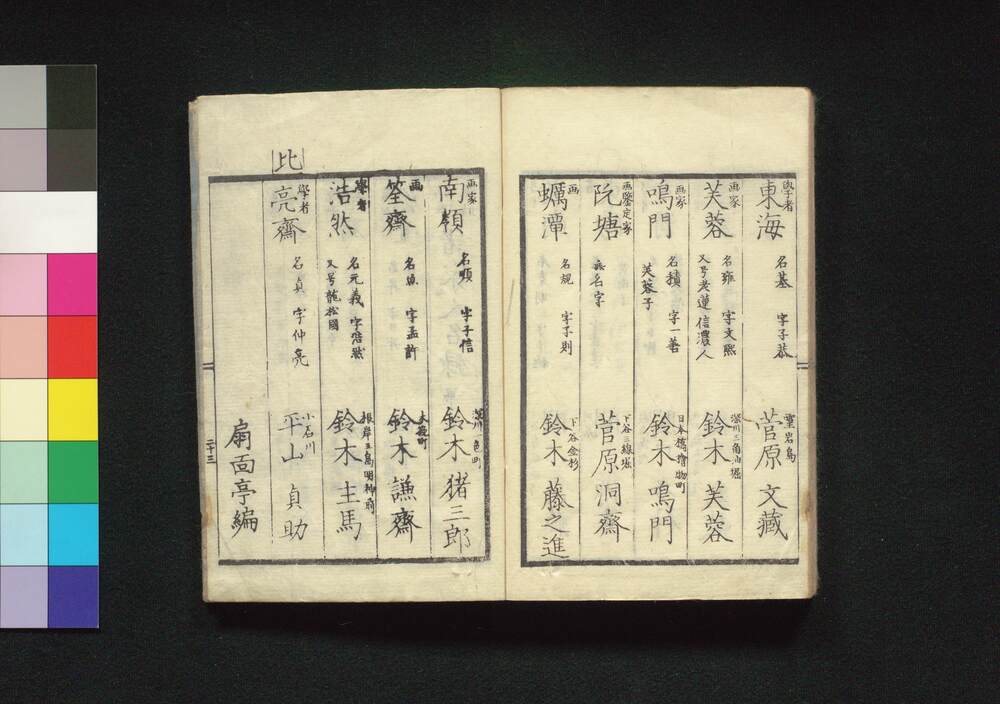 學者
東海
名基 字子恭
霊岩島
菅原 文藏
画家
芙蓉
名雍 字文熙
又号老蓮 信濃人
深川三角油堀
鈴木 芙蓉
画家
鳴門
名積 字一善
芙蓉子
日本橋檜物町
鈴木 鳴門
画鑒定家
阮塘
無名字
下谷三線堀
菅原 洞齋
画
蠣潭
名規 字子則
下谷金杉
鈴木 藤之進
画家
南嶺
名順 字子信
深川一色町
鈴木 猪三郎
画
筌齋
名魚 字孟許
木挽町
鈴木 謙齋
學者
浩然
名元義 字浩然
又号龍松園
根岸五島明神前
鈴木 主馬
比
學者
亮齋
名貞 字仲亮
小石川
平山 貞助
扇面亭編
二十三